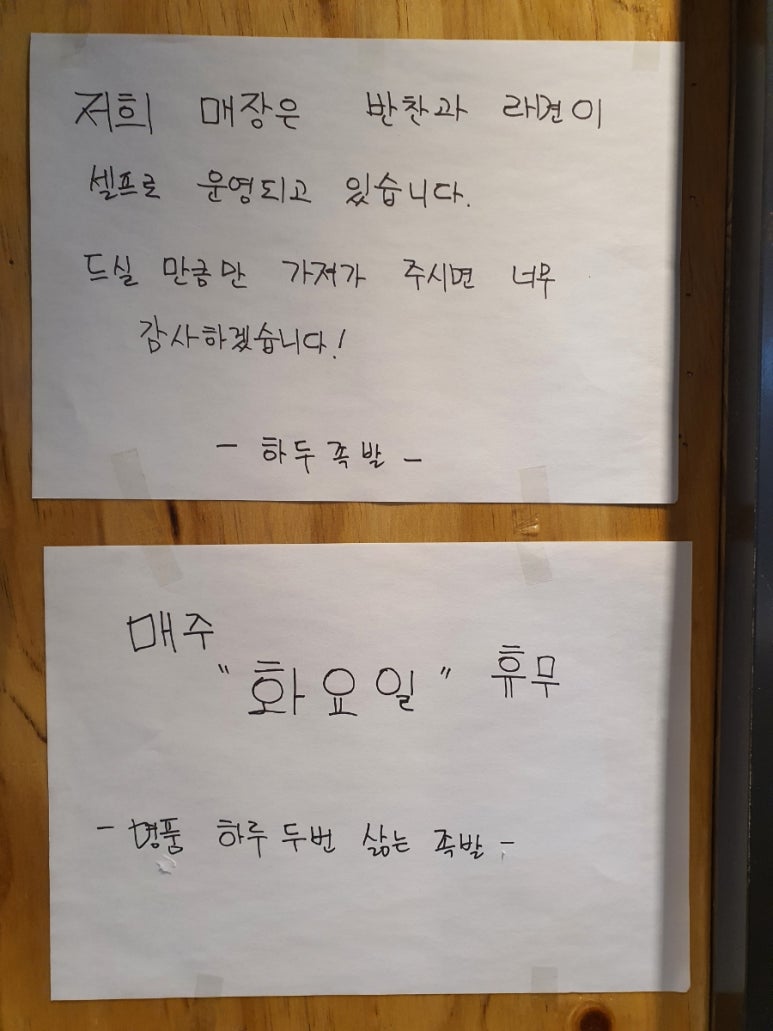 저희 매장은 반찬과 라면이
셀프로 운영되고 있습니다.
드실 만큼만 가져가 주시면 너무
감사하겠습니다!
- 하두족발 -
매주
"화요일" 휴무
- 명품 하루 두번 삶는 족발 -